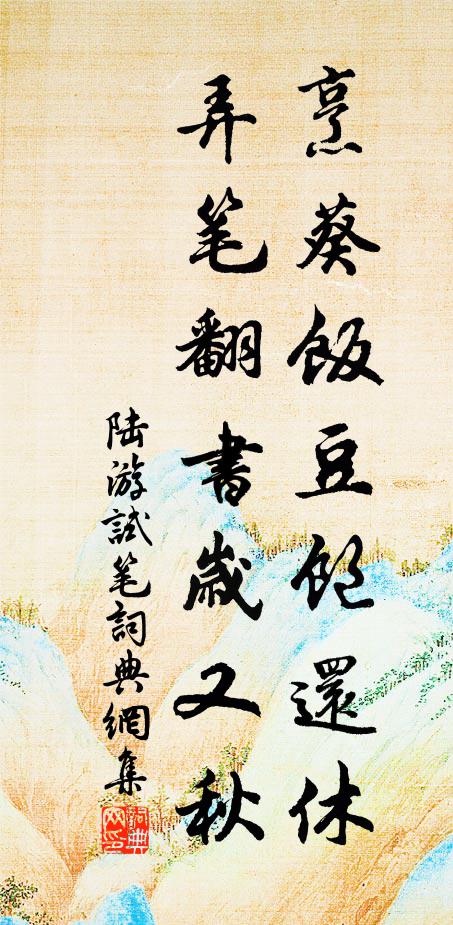 烹葵飯豆飽還休
弄筆翻書歲又秋
陸游試筆詞典網集
詞典網印